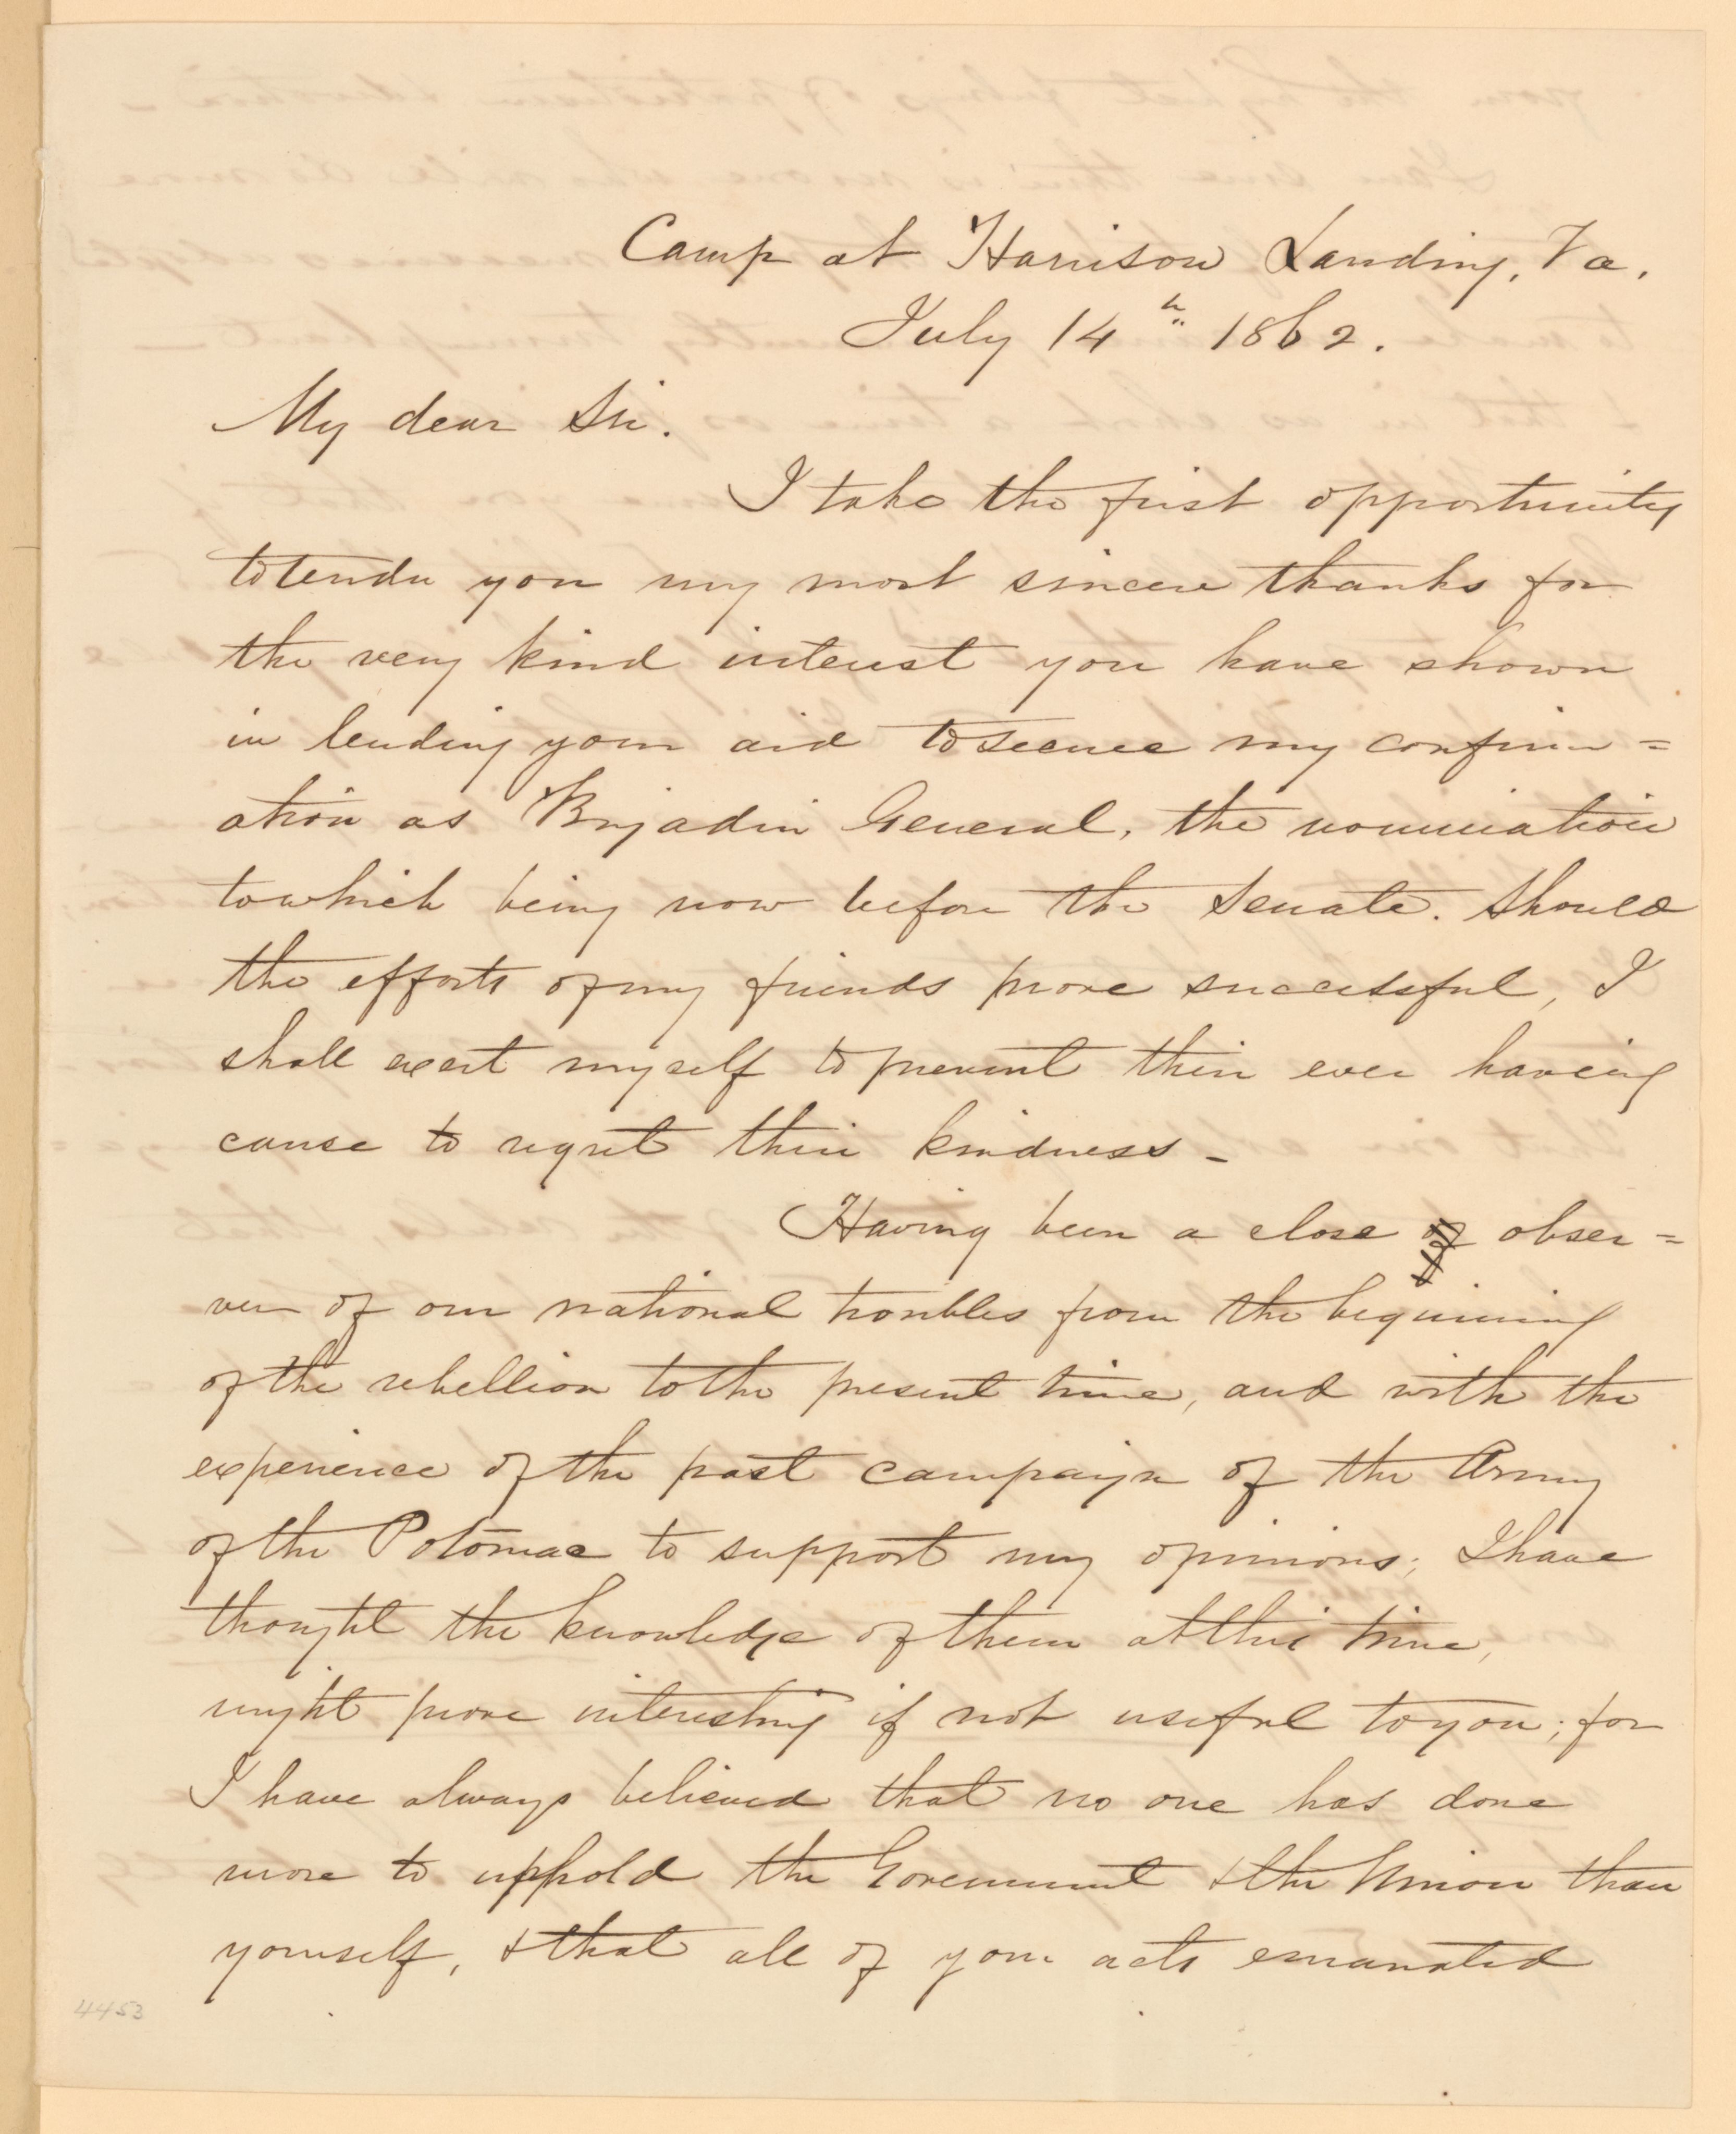 Camp at Harrison Landing, Va.
July 14th 1862.
My dear Sir.
I take the first opportunity
to tender you my most sincere thanks for
the very kind interest you have shown
in lending your aid to secure my confirm=
ation as Brigadier General, the nomination
to which being now before the Senate. Should
the efforts of my friends prove successful, I
shall exert myself to prevent their ever having
cause to regret their kindness –
Having been a close of obser=
ver of our national troubles from the beginning
of the rebellion to the present time, and with the
experience of the past campaign of the Army
of the Potomac to support my opinions; I have
thought the knowledge of them at this time,
might prove interesting if not useful to you; for
I have always believed that no one has done
more to uphold the Government & the Union than
yourself, & that all of your acts emanated
4453